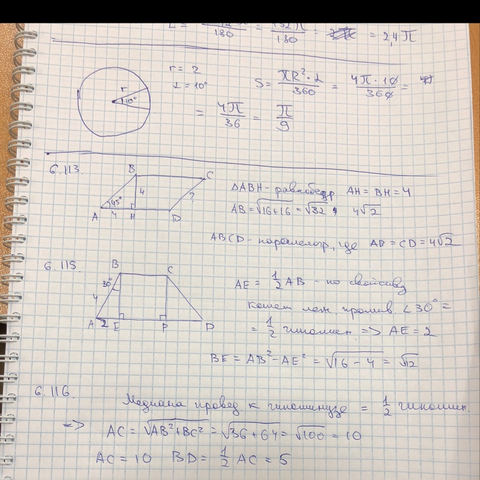 180 = 180 = = 2,4π
r = 2
∠ = 10°
S = πR²·∠ / 360 = 4π·10 / 360 =
= 4π / 36 = π / 9
r
10°
6.113
B C
4 ?
45°
A 4 H D
△ABH - равнобедр AH = BH = 4
AB = √16+16 = √32, 4√2
ABCD - паралелогр, где AB = CD = 4√2
6.115
B C
30°
4
A 2 E P D
AE = 1/2 AB - по свойству
катет леж. против ∠30° =
= 1/2 гипотен. => AE = 2
BE = AB² - AE² = √16 - 4 = √12
6.116
Медиана провед к гипотинузе = 1/2 гипотен
=> AC = √AB² + BC² = √36+64 = √100 = 10
AC = 10 BD = 1/2 AC = 5